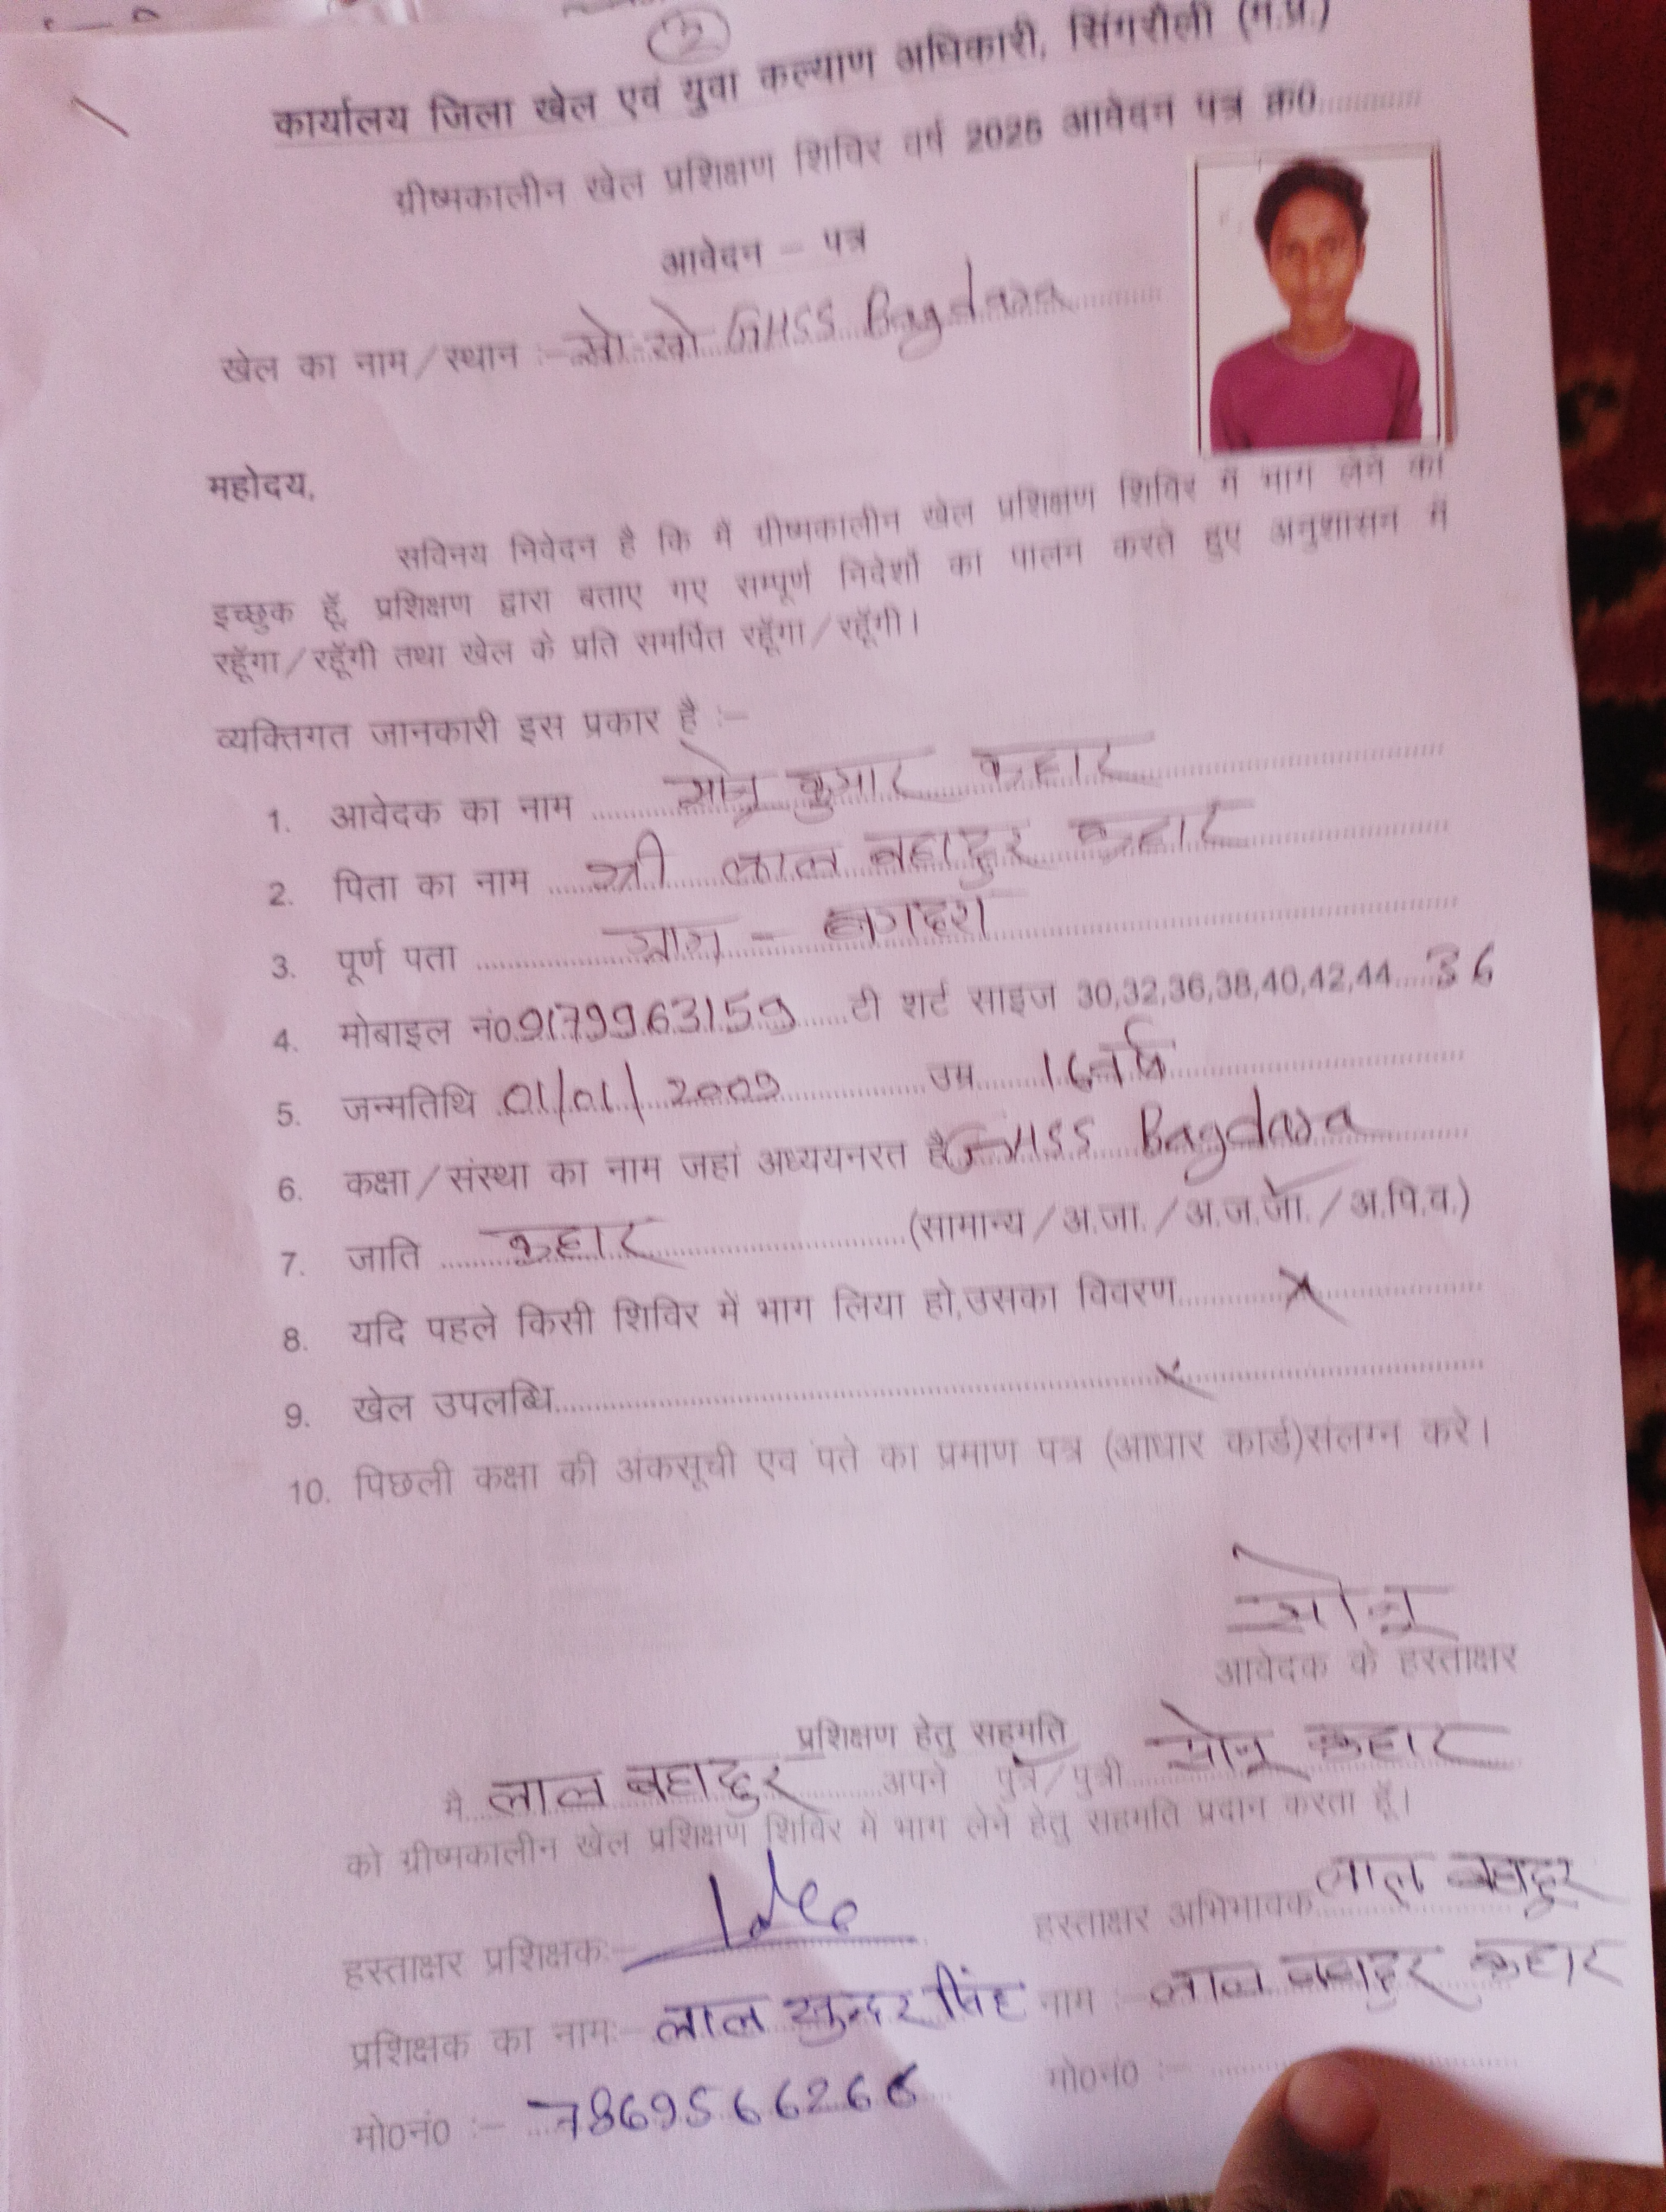 2
कार्यालय जिला खेल एवं युवा कल्याण अधिकारी, सिंगरौली (म.प्र.)
ग्रीष्मकालीन खेल प्रशिक्षण शिविर वर्ष 2025 आवेदन पत्र क्र0............
आवेदन – पत्र
खेल का नाम/स्थान :– खो खो GHSS Bagdara
महोदय,
सविनय निवेदन है कि मैं ग्रीष्मकालीन खेल प्रशिक्षण शिविर में भाग लेने का
इच्छुक हूँ, प्रशिक्षण द्वारा बताए गए सम्पूर्ण निर्देशों का पालन करते हुए अनुशासन में
रहूँगा/रहूँगी तथा खेल के प्रति समर्पित रहूँगा/रहूँगी।
व्यक्तिगत जानकारी इस प्रकार है :–
1. आवेदक का नाम सोनू कुमार कहार
2. पिता का नाम श्री लाल बहादुर कहार
3. पूर्ण पता ग्राम – बगदरा
4. मोबाइल नं0 9179963159 टी शर्ट साइज 30,32,36,38,40,42,44 36
5. जन्मतिथि 01/01/2009 उम्र 16 वर्ष
6. कक्षा/संस्था का नाम जहां अध्ययनरत है GHSS Bagdara
7. जाति कहार (सामान्य/अ.जा./अ.ज.जा./अ.पि.व.)
8. यदि पहले किसी शिविर में भाग लिया हो,उसका विवरण X
9. खेल उपलब्धि X
10. पिछली कक्षा की अंकसूची एव पते का प्रमाण पत्र (आधार कार्ड)संलग्न करे।
सोनू
आवेदक के हस्ताक्षर
प्रशिक्षण हेतु सहमति
मै लाल बहादुर अपने पुत्र/पुत्री सोनू कहार
को ग्रीष्मकालीन खेल प्रशिक्षण शिविर मे भाग लेने हेतु सहमति प्रदान करता हूँ।
हस्ताक्षर प्रशिक्षकः– हस्ताक्षर अभिभावक लाल बहादुर
प्रशिक्षक का नामः– लाल सुन्दर सिंह नाम :– लाल बहादुर कहार
मो0नं0 :– 7869566266 मो0नं0 :–